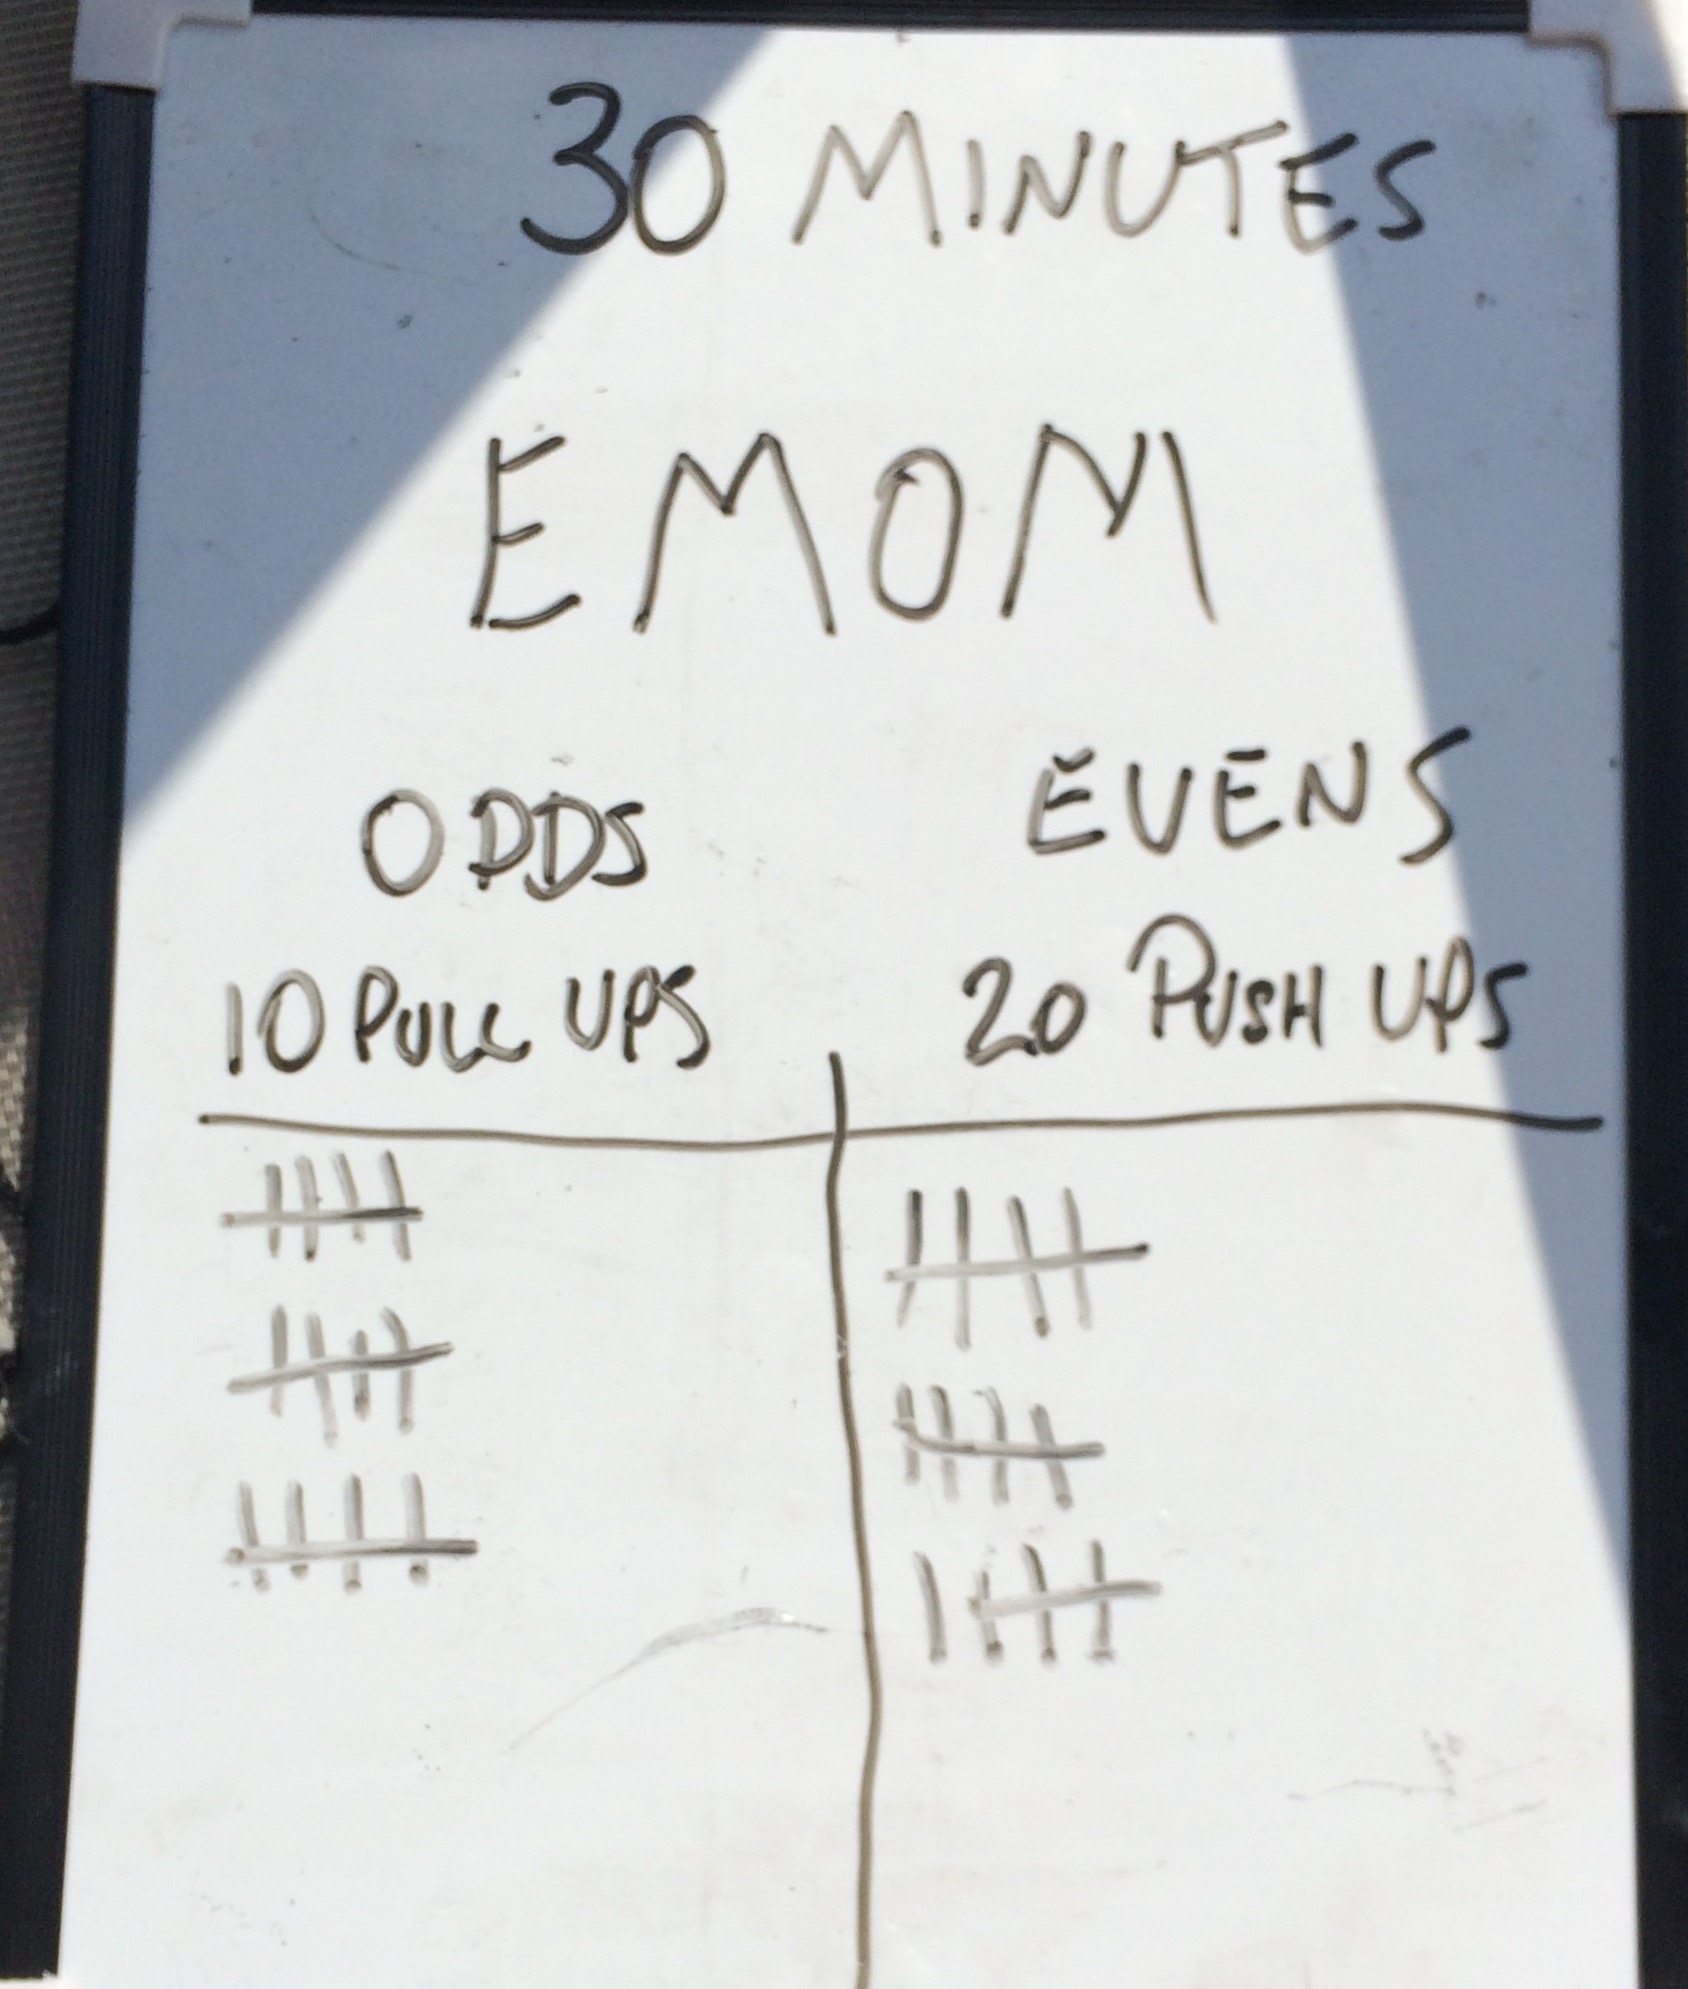 30 MINUTES
EMOM
ODDS EVENS
10 PULL UPS 20 PUSH UPS